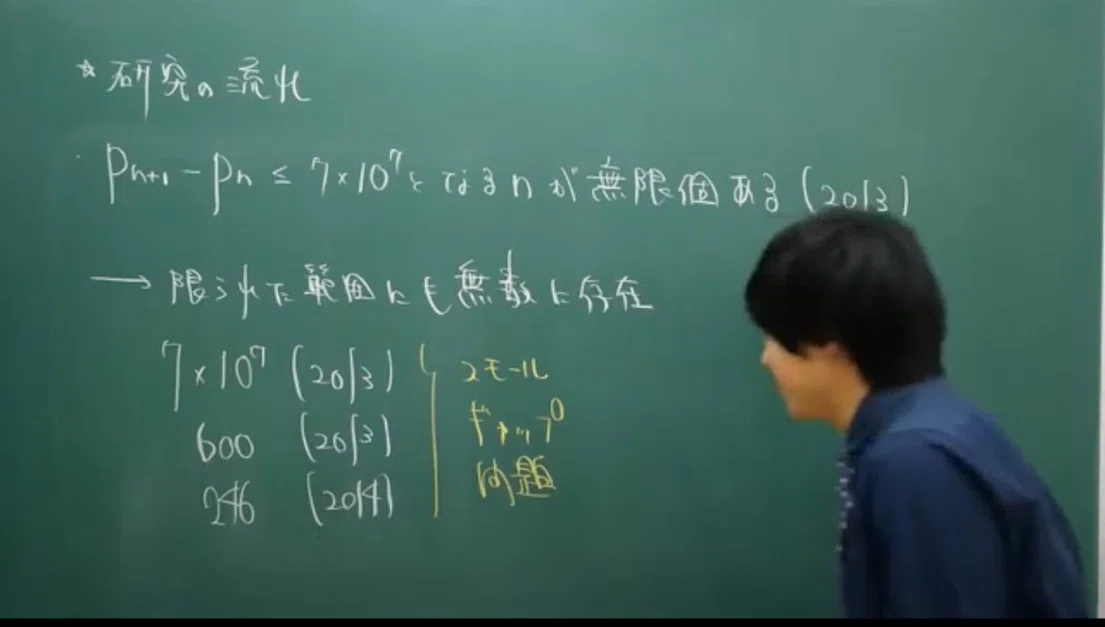 * 研究の流れ
・ Pn+1 − Pn ≤ 7×10⁷となるnが無限個ある (2013)
→ 限られた範囲にも無数に存在
7×10⁷ (2013)
600 (2013)
246 (2014)
スモール
ギャップ
問題